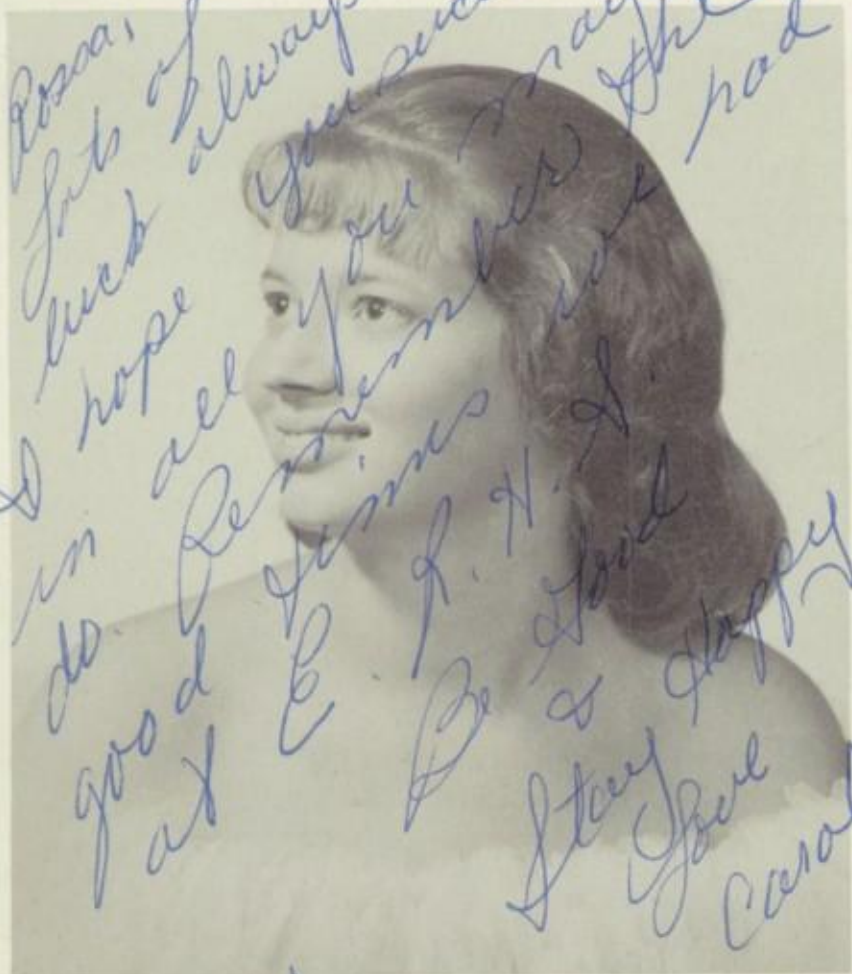 Rossa,
Lots of
luck always
& hope you suc
in all you may
do. Remember the
good times we had
at E. R. H. S.
Be Good
& Stay Happy
Love
Carol